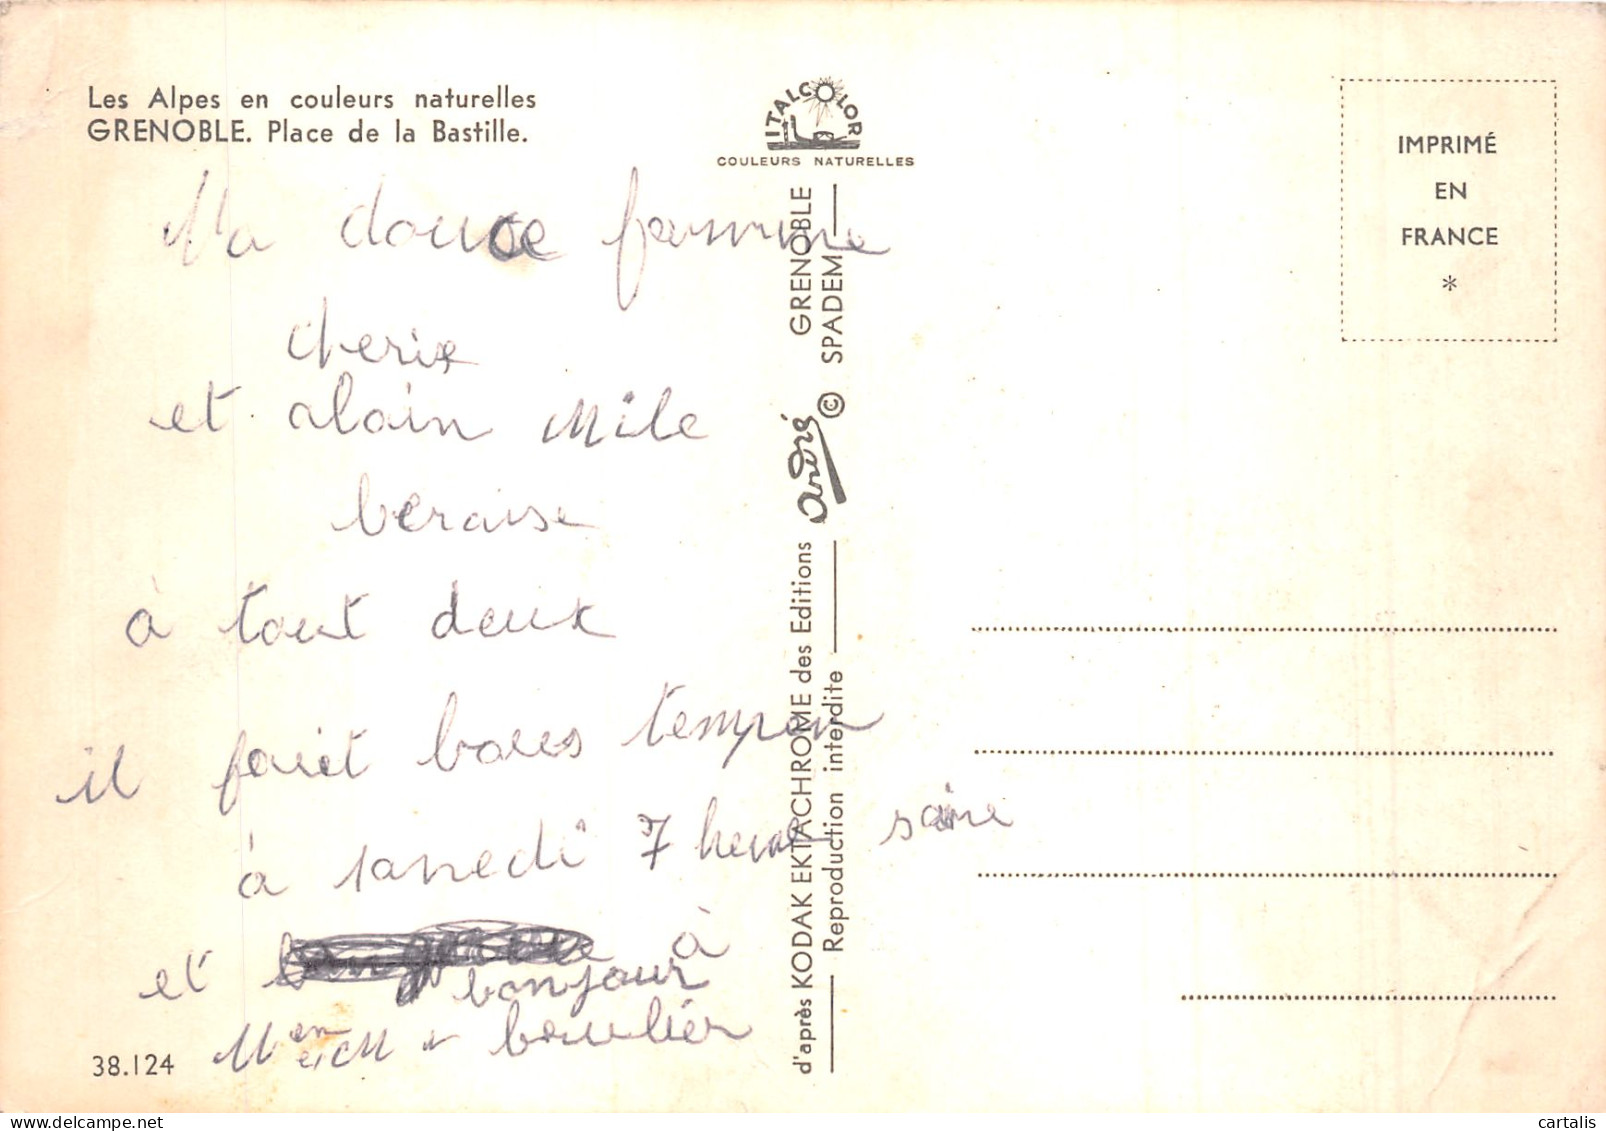 Les Alpes en couleurs naturelles
GRENOBLE. Place de la Bastille.
ITALCOLOR
COULEURS NATURELLES
IMPRIMÉ
EN
FRANCE
*
Ma douce famme
cherie
et alain Mile
beraise
à tout deux
il fait boues tempen
à samedi 7 heure soire
et à
bonjour
Men et M boulier
38.124
d'après KODAK EKTACHROME des Editions André GRENOBLE
Reproduction interdite © SPADEM
cartalis